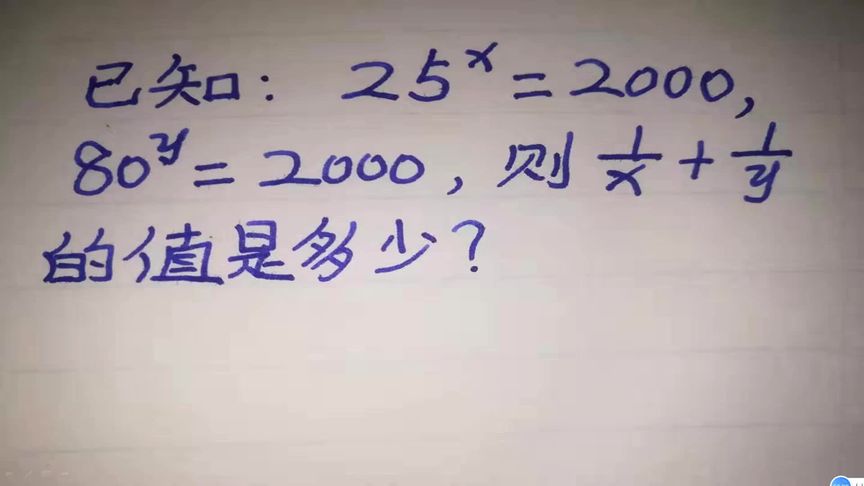 已知: 25ˣ = 2000,
80ʸ = 2000, 则 1/x + 1/y
的值是多少?